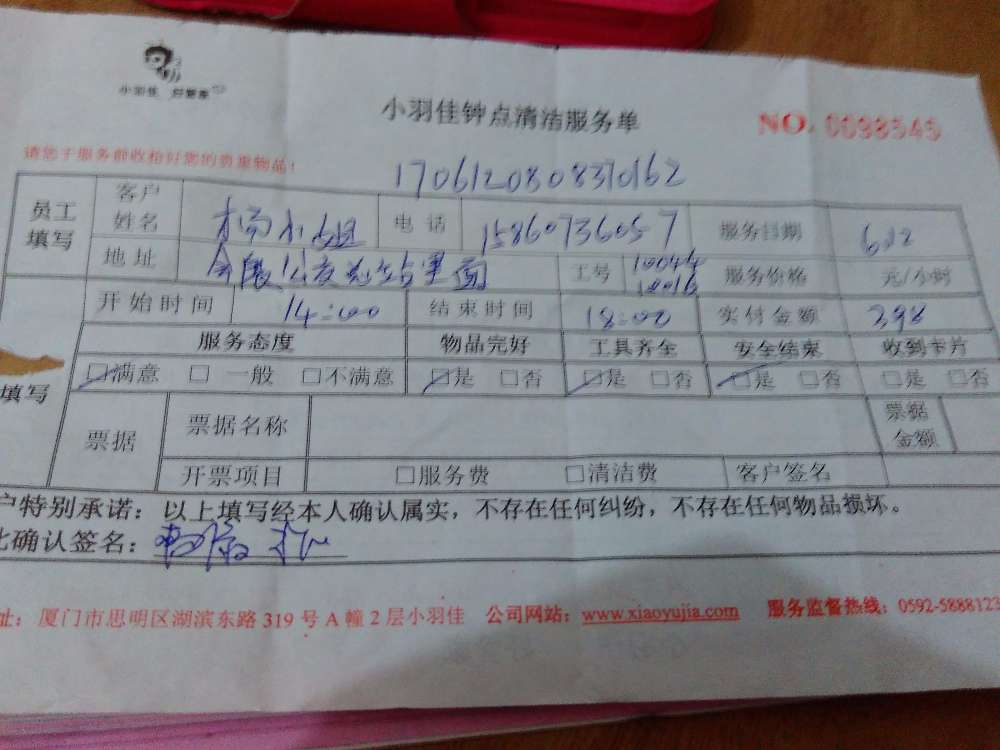 小羽佳 好管家
小羽佳钟点清洁服务单
NO. 0098545
请您于服务前收检好您的贵重物品!
1706120808370162
员工填写 客户姓名 杨小姐 电话 15860736057 服务日期 6.12
地址 里面 工号 10044 10016 服务价格 元/小时
开始时间 14:00 结束时间 18:00 实付金额 398
服务态度 物品完好 工具齐全 安全结束 收到卡片
填写 ☑满意 □一般 □不满意 ☑是 □否 ☑是 □否 ☑是 □否 □是 □否
票据 票据名称 票据金额
开票项目 □服务费 □清洁费 客户签名
户特别承诺:以上填写经本人确认属实,不存在任何纠纷,不存在任何物品损坏。
此确认签名:
址:厦门市思明区湖滨东路 319 号 A 幢 2 层小羽佳 公司网站:www.xiaoyujia.com 服务监督热线:0592-5888123